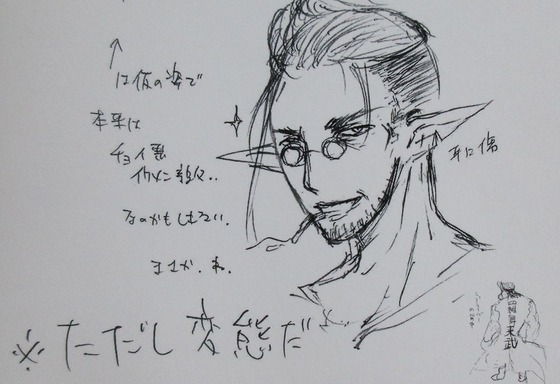 ↑
は仮の姿で
本来は
チョイ悪
イケメン教授..
なのかもしれない.
まさか.ね.
耳に傷
※ただし変態だ